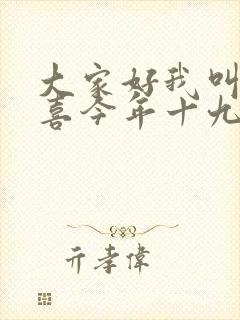 大家好我叫
喜今年十九
亓孝偉